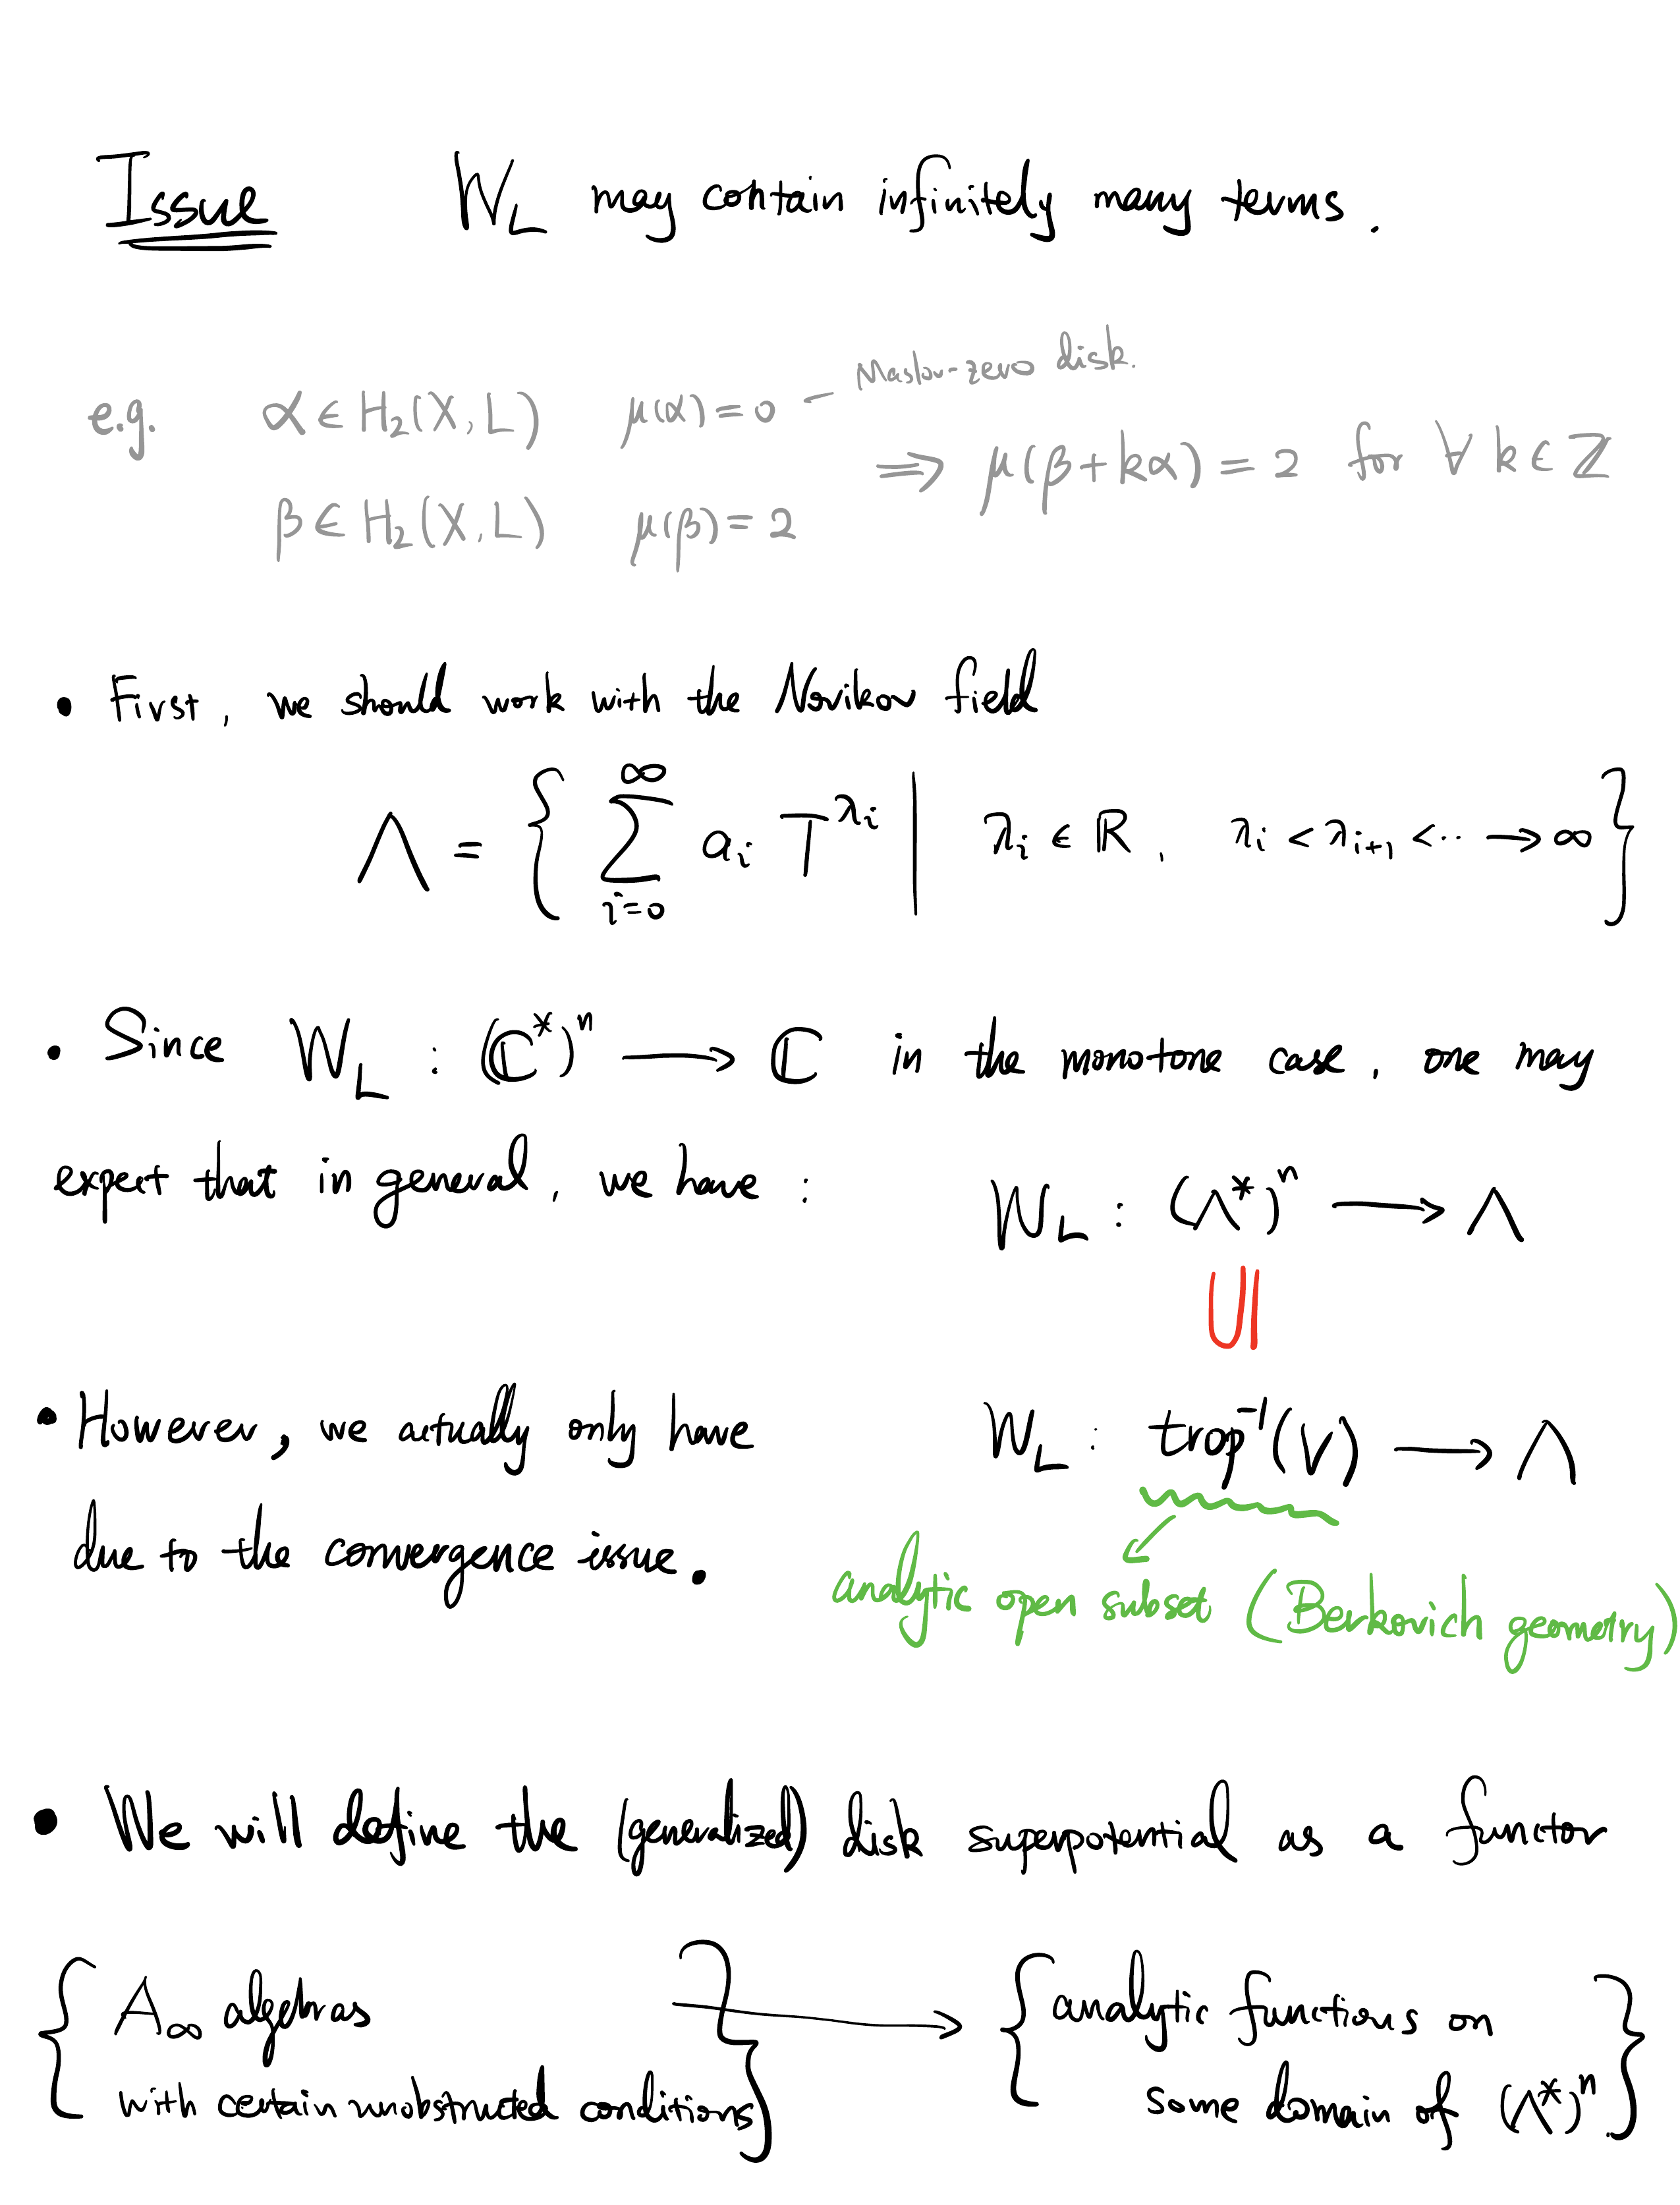 Issue W_L may contain infinitely many terms.
e.g. α ∈ H₂(X, L) μ(α) = 0 — Maslov-zero disk.
β ∈ H₂(X, L) μ(β) = 2 ⟹ μ(β + kα) = 2 for ∀ k ∈ ℤ
• First, we should work with the Novikov field
Λ = { ∑_{i=0}^{∞} a_i T^{λ_i} | λ_i ∈ ℝ, λ_i < λ_{i+1} < ··· → ∞ }
• Since W_L : (ℂ*)ⁿ ⟶ ℂ in the monotone case, one may
expect that in general, we have : W_L : (Λ*)ⁿ ⟶ Λ
∪|
• However, we actually only have W_L : trop⁻¹(V) ⟶ Λ
due to the convergence issue.
analytic open subset (Berkovich geometry)
• We will define the (generalized) disk superpotential as a functor
{ A_∞ algebras with certain unobstructed conditions } ⟶ { analytic functions on some domain of (Λ*)ⁿ }